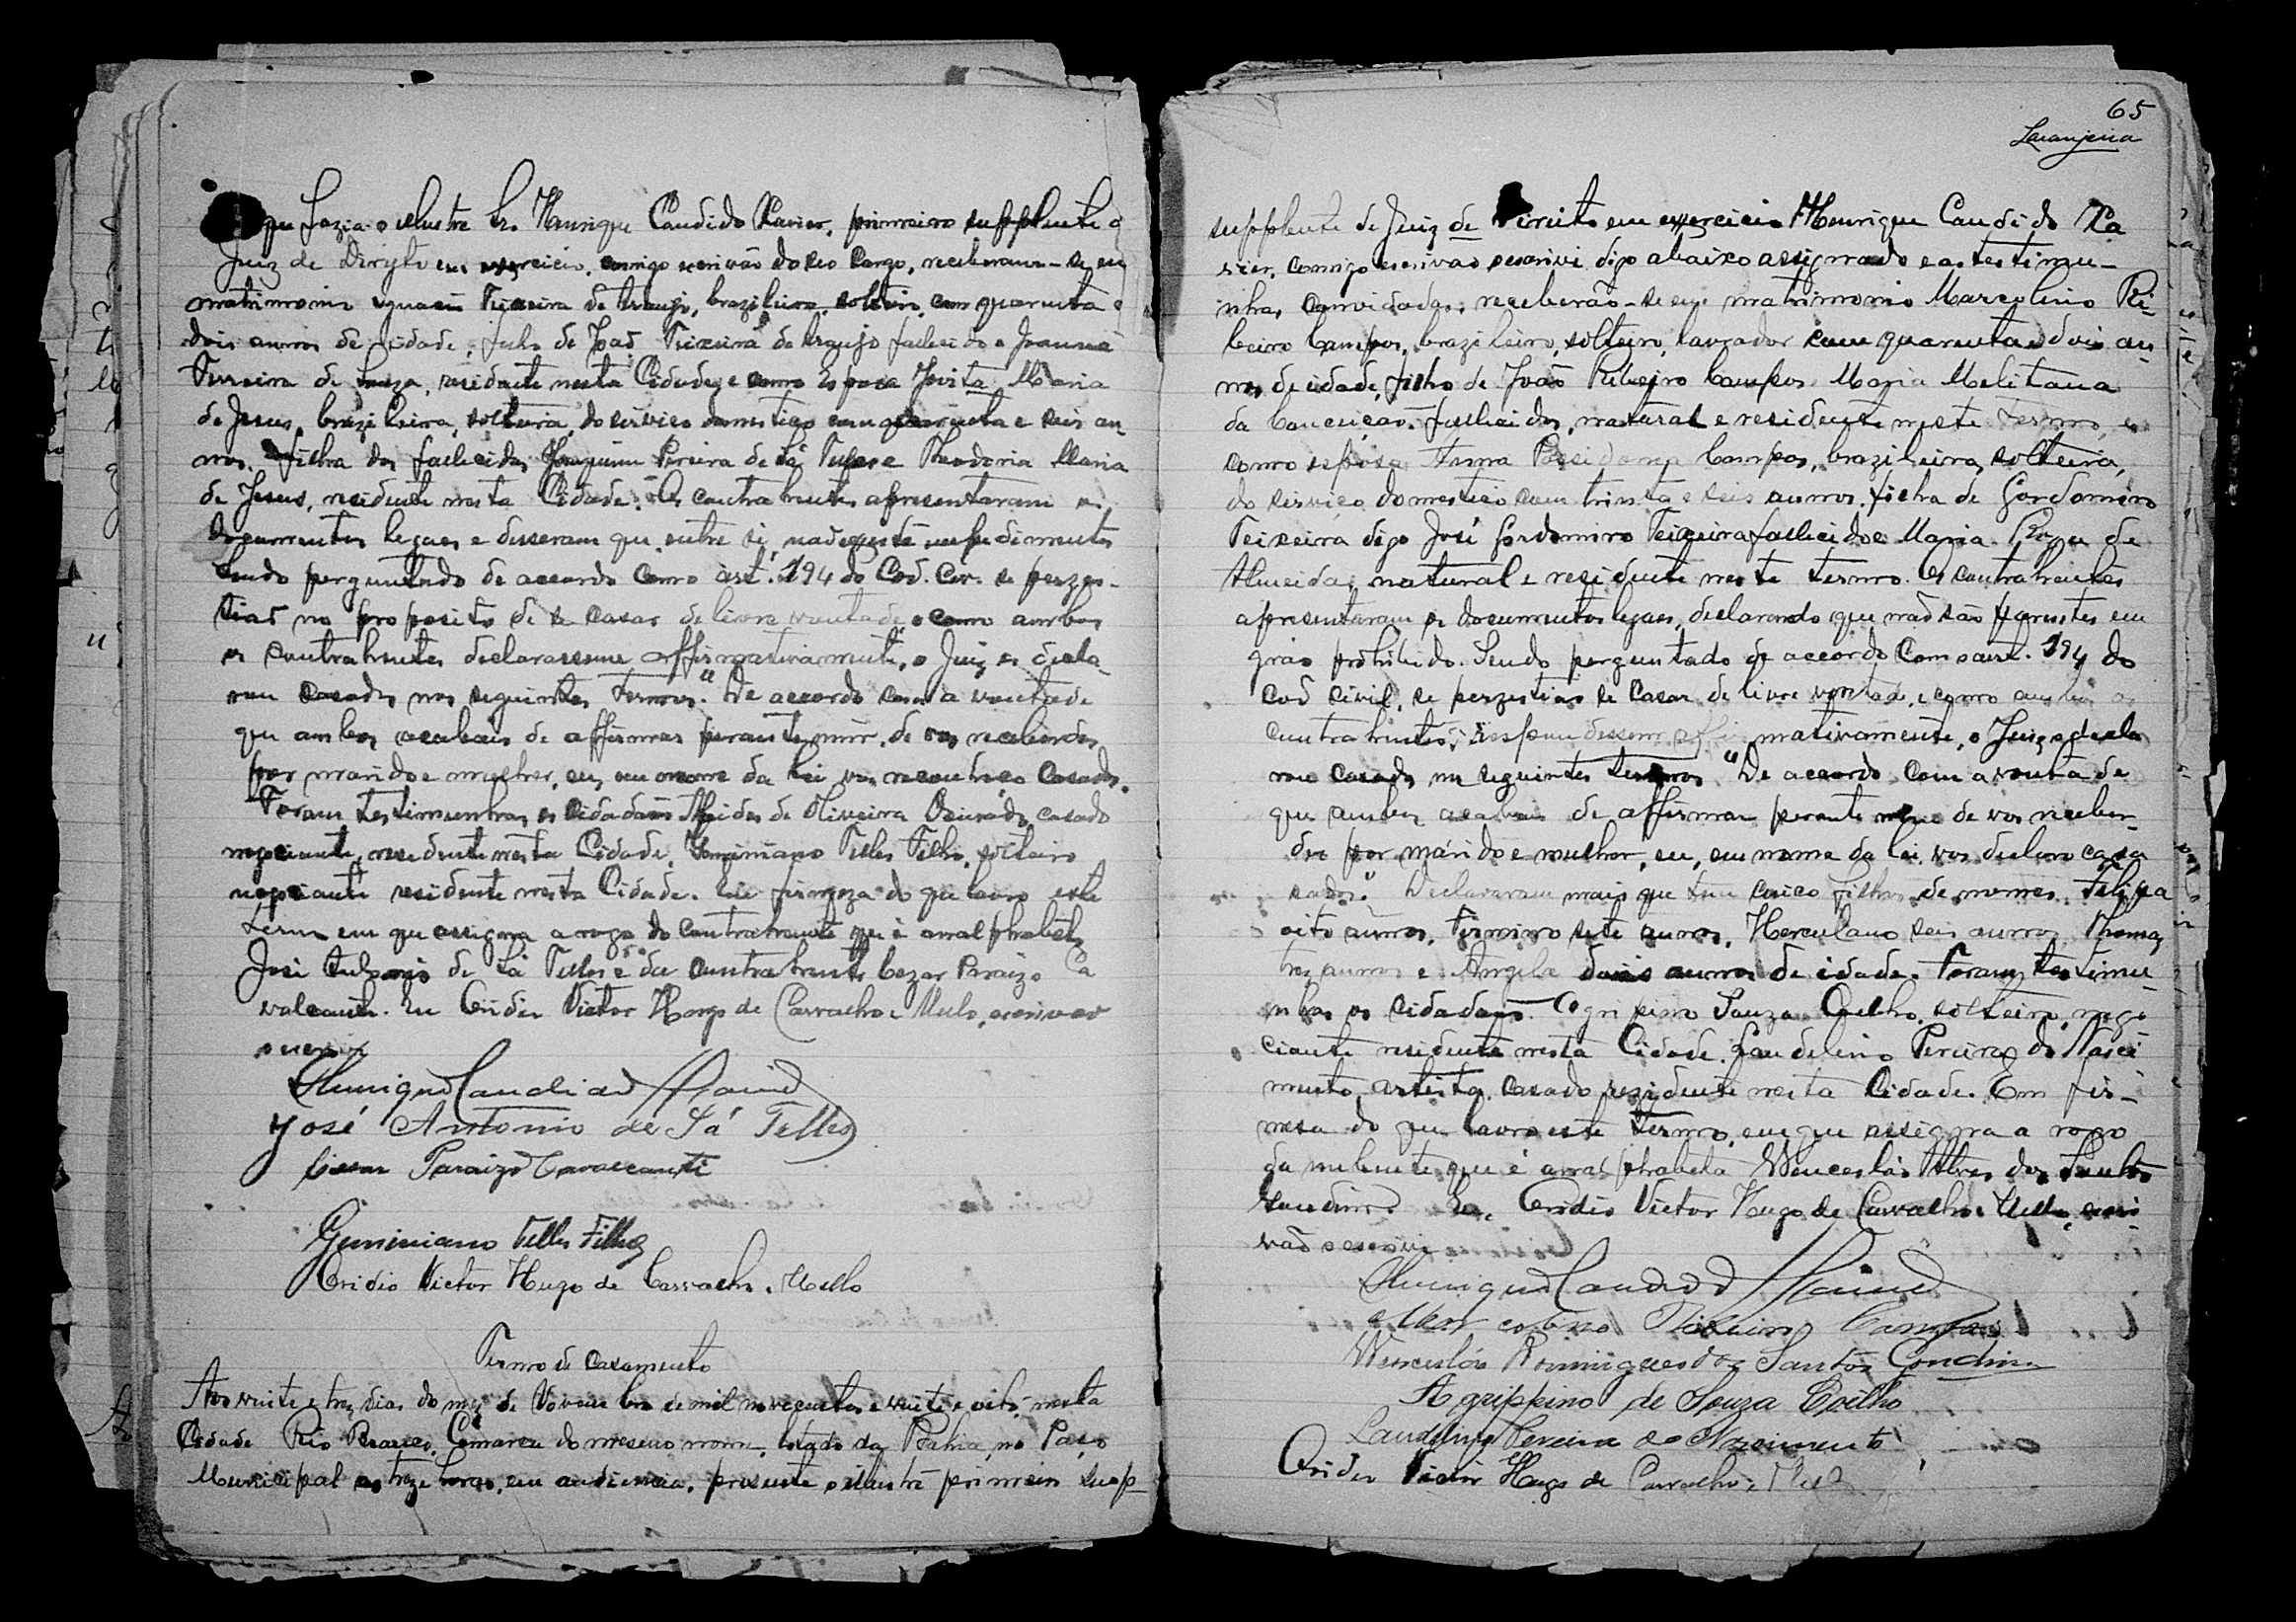 que fazia o illustre Sr. Henrique Candido Xavier, primeiro supplente
Juiz de Direito em exercicio, comigo escrivão do seo cargo, receberam-se em
matrimonio Teixeira de Araujo, brazileiro, solteiro, com quarenta e
dois annos de idade, filho de João Teixeira de Araujo fallecido e Joanna
Ferreira de Souza, residente nesta Cidade, e como Esposa Jovita Maria
de Jesus, brazileira, solteira, do serviço domestico com quarenta e seis an
nos. filha dos fallecidos Joaquim Pereira de Sá Telles e Theodoria Maria
de Jesus, residente nesta Cidade. Os contrahentes apresentaram os
documentos legaes e disseram que entre si
Sendo perguntado de accordo com o art. 194 do Cod. Civ. se perzes-
tiad no proposito de se casar de livre vontade e como ambos
os contrahentes declarassem affirmativamente, o Juiz os decla-
rou casados nos seguintes termos: "De accordo com a vontade
que ambos acabais de affirmar perante mim, de vos receberdes
por marido e mulher, eu, em nome da lei vos reconheço casados.
Foram testimunhas os Cidadãos de Oliveira casado
negociante, residente nesta Cidade, Geminiano Telles Filho, solteiro
negociante residente nesta Cidade. Em firmeza do que lavro este
termo em que assigna a rogo do contrahente que é analphabeto
José Antonio de Sá Telles e da contrahente Cezar Paraizo Ca
valcante. Eu Ovidio Victor Hugo de Carvalho e Mello, escrivão
o escrevi
Henrique Candido Xavier
José Antonio de Sá Telles
Cesar Paraizo Cavalcanti
Geminiano Telles Filho
Ovidio Victor Hugo de Carvalho e Mello
Termo de Casamento
Aos vinte e trez dias do mez de Novembro de mil novecentos e vinte e oito, nesta
Cidade Rio Branco, Comarca do mesmo nome, Estado da Bahia, no Paço
Municipal as treze horas, em audiencia, presente o illustre primeiro supp-
65
Laranjeira
supplente de Juiz de Direito em exercicio Henrique Candido Xa
vier, comigo escrivão digo abaixo assignado e as testimu-
nhas convidadas, receberão-se em matrimonio Marcolino Ri-
beiro Campos, brazileiro, solteiro, lavrador com quarenta e dois an
nos de idade, filho de João Ribeiro Campos Maria Melitana
da Conceição, fallecidos, natural e residente neste termo, e
como esposa Anna Campos, brazileira, solteira,
do serviço domestico com trinta e seis annos, filha de Gordomiro
Teixeira digo José Gordomiro Teixeira fallecido e Maria de
Almeida, natural e residente neste termo. Os contrahentes
apresentaram os documentos legaes, declarando que não são parentes em
gráo prohibido. Sendo perguntado de accordo com o art. 194 do
cod civil, se perzestião se casar de livre vontade, e como ambos os
contrahentes respondessem affirmativamente, o Juiz os decla
rou casados nos seguintes termos "De accordo com a vontade
que ambos acabais de affirmar perante mim de vos receber-
des por marido e mulher, eu, em nome da lei vos declaro casa
sados." Declararam mais que tem cinco filhos de nomes Felippa
oito annos, Firmino sete annos, Herculano seis annos, Thomaz
trez annos e Angela dois annos de idade. Foram testimu-
nhas os cidadãos Agripino Souza Coelho, solteiro, nego
ciante residente nesta Cidade. Laudelino Pereira do Nasci
mento, artista, casado rezidente nesta Cidade. Em fir-
mesa do que lavro este termo, em que assigna a rogo
da nubente que é analphabeta Wenceslão dos Santos
Eu, Ovidio Victor Hugo de Carvalho e Mello, escri
vão o escrevi
Henrique Candido Xavier
Marcolino Ribeiro Campos
Wenceslão Rominguesdos Santos
Agrippino de Souza Coelho
Laudelino Pereira do Nascimento
Ovidio Victor Hugo de Carvalho e Mello